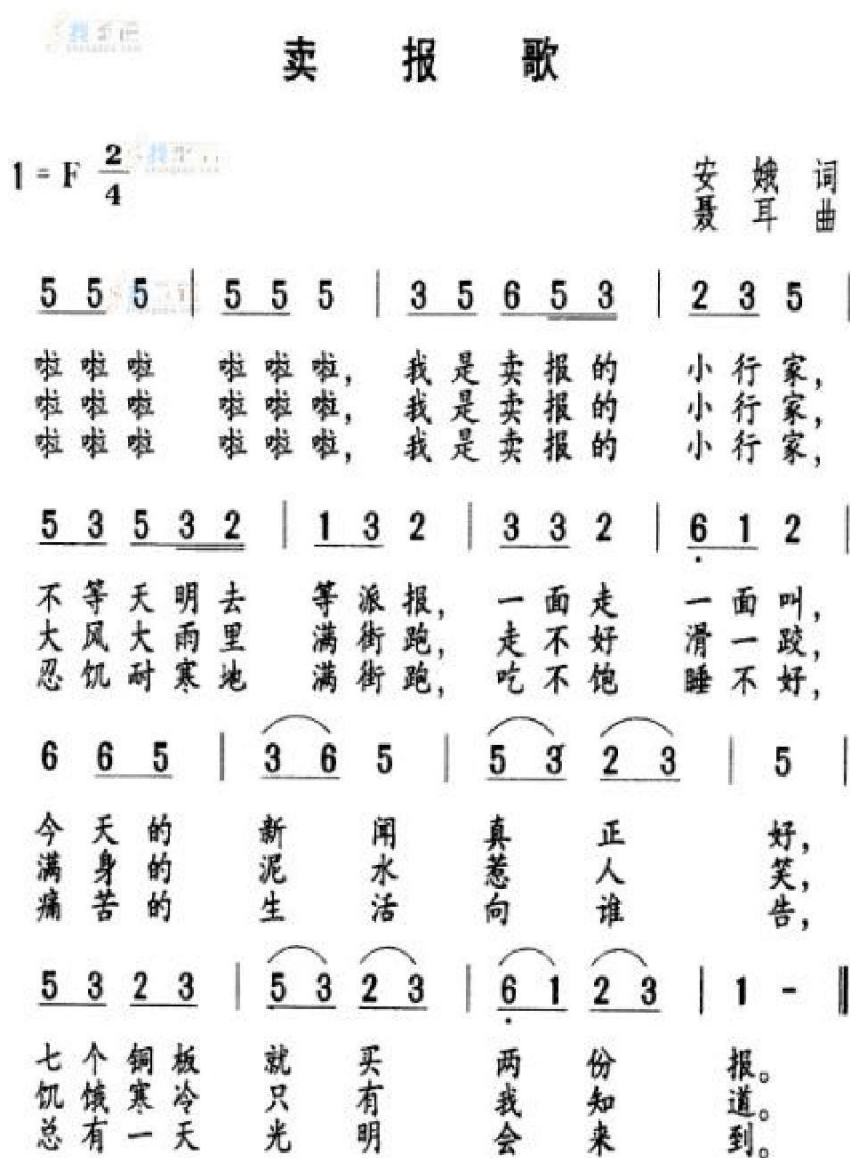 卖 报 歌
1 = F 2/4
安 娥 词
聂 耳 曲
5 5 5 | 5 5 5 | 3 5 6 5 3 | 2 3 5 |
啦啦啦 啦啦啦, 我是卖报的 小行家,
啦啦啦 啦啦啦, 我是卖报的 小行家,
啦啦啦 啦啦啦, 我是卖报的 小行家,
5 3 5 3 2 | 1 3 2 | 3 3 2 | 6 1 2 |
不等天明去 等派报, 一面走 一面叫,
大风大雨里 满街跑, 走不好 滑一跤,
忍饥耐寒地 满街跑, 吃不饱 睡不好,
6 6 5 | 3 6 5 | 5 3 2 3 | 5 |
今天的 新闻 真正 好,
满身的 泥水 惹人 笑,
痛苦的 生活 向谁 告,
5 3 2 3 | 5 3 2 3 | 6 1 2 3 | 1 - ‖
七个铜板 就买 两份 报。
饥饿寒冷 只有 我知 道。
总有一天 光明 会来 到。